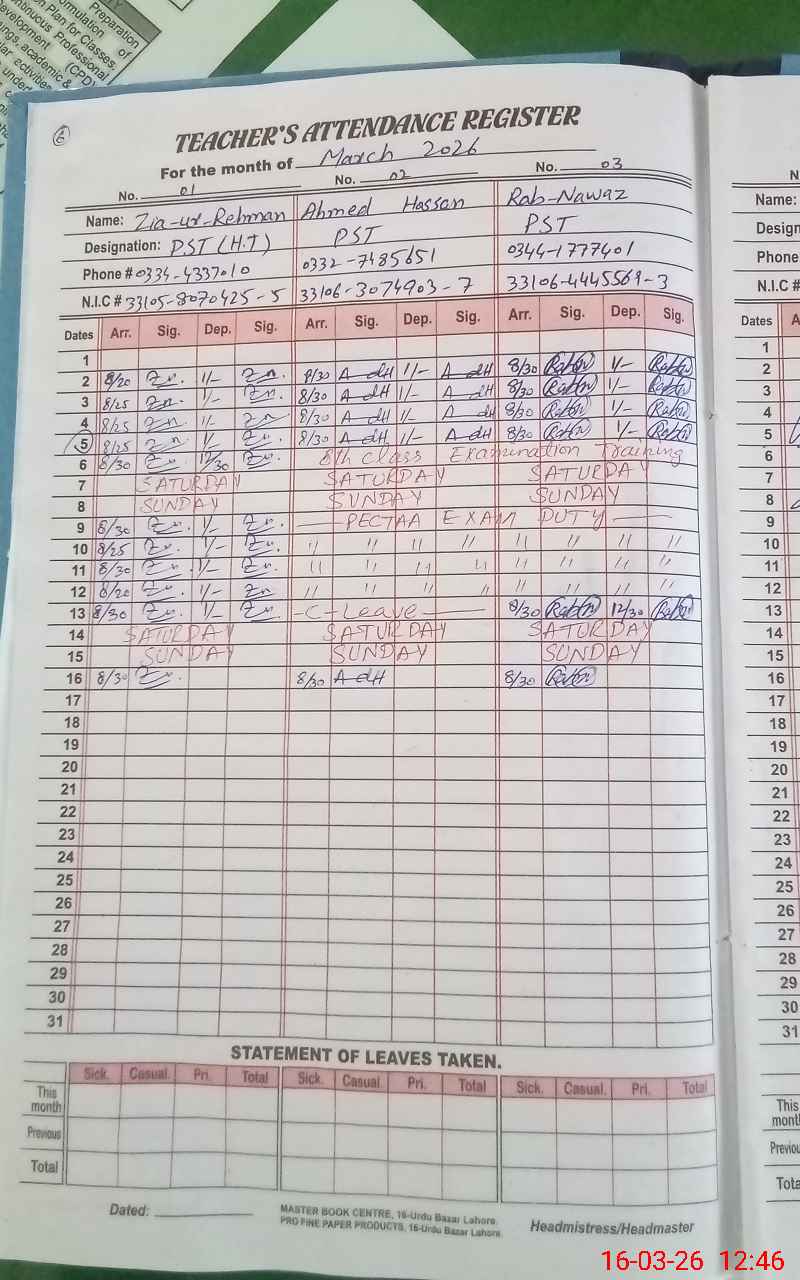 Preparation
rmulation of
n Plan for Classes,
ntinuous Professional
evelopment (CPD)
ings, academic &
6
TEACHER'S ATTENDANCE REGISTER
For the month of March 2026
No. 01 No. 02 No. 03
Name: Zia-ur-Rehman Ahmed Hassan Rab-Nawaz
Designation: PST (H.T) PST PST
Phone # 0334-4337010 0332-7485651 0344-1777401
N.I.C # 33105-8070425-5 33106-3074903-7 33106-4445569-3
Dates Arr. Sig. Dep. Sig. Arr. Sig. Dep. Sig. Arr. Sig. Dep. Sig.
1
2 8/20 Zn. 1/- Zn. 8/30 AdH 1/- AdH 8/30 1/-
3 8/25 Zn. 1/- Zn. 8/30 AdH 1/- AdH 8/30 1/-
4 8/25 Zn 1/- Zn 8/30 AdH 1/- AdH 8/30 1/-
5 8/25 Zn 1/- Zn. 8/30 AdH 1/- AdH 8/30 1/-
6 8/30 Zn 12/30 Zn. 8th class Examination Training
7 SATURDAY SATURDAY SATURDAY
8 SUNDAY SUNDAY SUNDAY
9 8/30 Zn. 1/- Zn. — PECTAA EXAM DUTY —
10 8/25 Zn. 1/- Zn. " " " " " " " "
11 8/30 Zn. 1/- Zn. " " " " " " " "
12 8/20 Zn. 1/- Zn " " " " " " " "
13 8/30 Zn. 1/- Zn. -C-Leave — 8/30 12/30
14 SATURDAY SATURDAY SATURDAY
15 SUNDAY SUNDAY SUNDAY
16 8/30 Zn. 8/30 AdH 8/30
17
18
19
20
21
22
23
24
25
26
27
28
29
30
31
STATEMENT OF LEAVES TAKEN.
Sick. Casual. Pri. Total Sick. Casual Pri. Total Sick. Casual. Pri. Total
This month
Previous
Total
Dated:
MASTER BOOK CENTRE, 16-Urdu Bazar Lahore.
PRO FINE PAPER PRODUCTS, 16-Urdu Bazar Lahore.
Headmistress/Headmaster
N
Name:
Design
Phone
N.I.C #
Dates A
1
2
3
4
5
6
7
8
9
10
11
12
13
14
15
16
17
18
19
20
21
22
23
24
25
26
27
28
29
30
31
This
mont
Previou
Tota
16-03-26 12:46